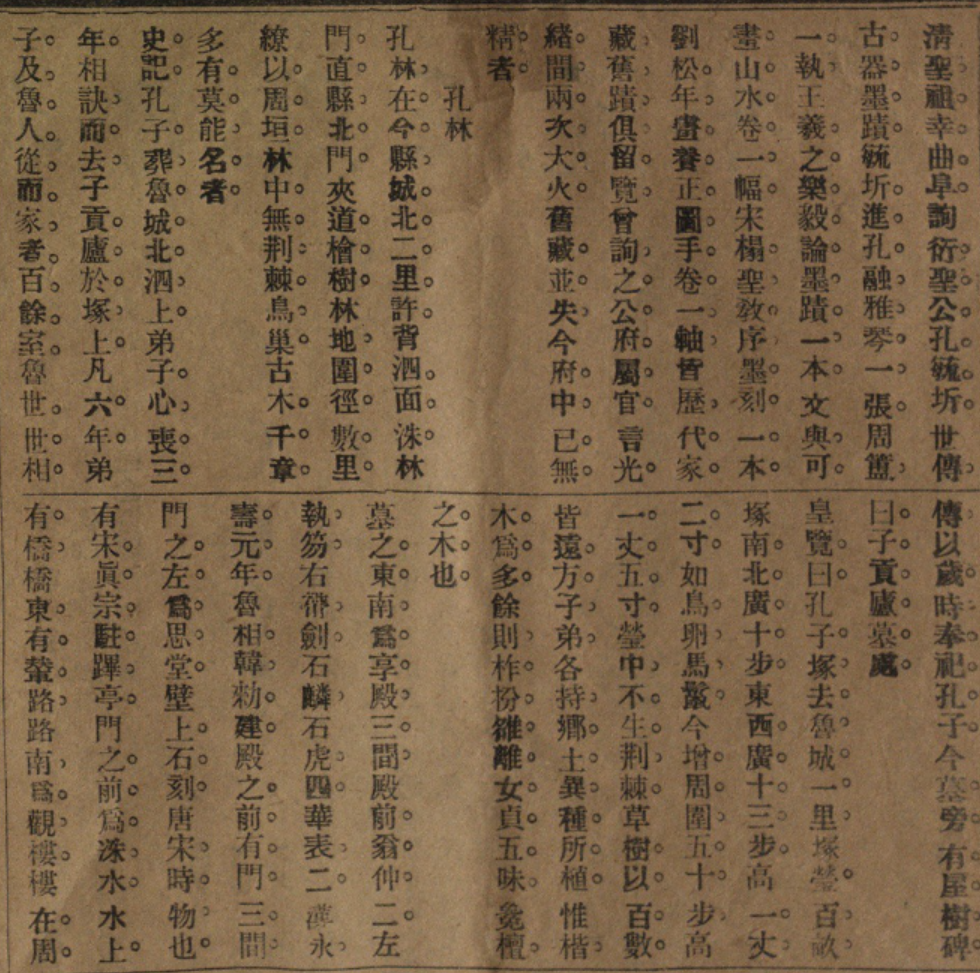 清聖祖幸曲阜詢衍聖公孔毓圻世傳
古器墨蹟毓圻進孔融雅琴一張周簠
一執王羲之樂毅論墨蹟一本文與可
畫山水卷一幅宋榻聖敎序墨刻一本
劉松年畫養正圖手卷一軸皆歷代家
藏舊蹟俱留覽曾詢之公府屬官言光
緒間兩次大火舊藏並失今府中已無
精者
孔林
孔林在今縣城北二里許背泗面洙林
門直縣北門夾道檜樹林地圍徑數里
繚以周垣林中無荆棘鳥巢古木千章
多有莫能名者
史記孔子葬魯城北泗上弟子心喪三
年相訣而去子貢廬於塚上凡六年弟
子及魯人從而家者百餘室魯世世相
傳以歲時奉祀孔子今墓旁有屋樹碑
曰子貢廬墓處
皇覽曰孔子塚去魯城一里塚塋百畝
塚南北廣十步東西廣十三步高一丈
二寸如鳥卵馬鬣今增周圍五十步高
一丈五寸塋中不生荆棘草樹以百數
皆遠方子弟各持鄉土異種所植惟楷
木爲多餘則柞枌雒離女貞五味毚檀
之木也
墓之東南爲享殿三間殿前翁仲二左
執笏右帶劍石麟石虎四華表二漢永
壽元年魯相韓勑建殿之前有門三間
門之左爲思堂壁上石刻唐宋時物也
有宋眞宗駐蹕亭門之前爲洙水水上
有橋橋東有輦路路南爲觀樓樓在周